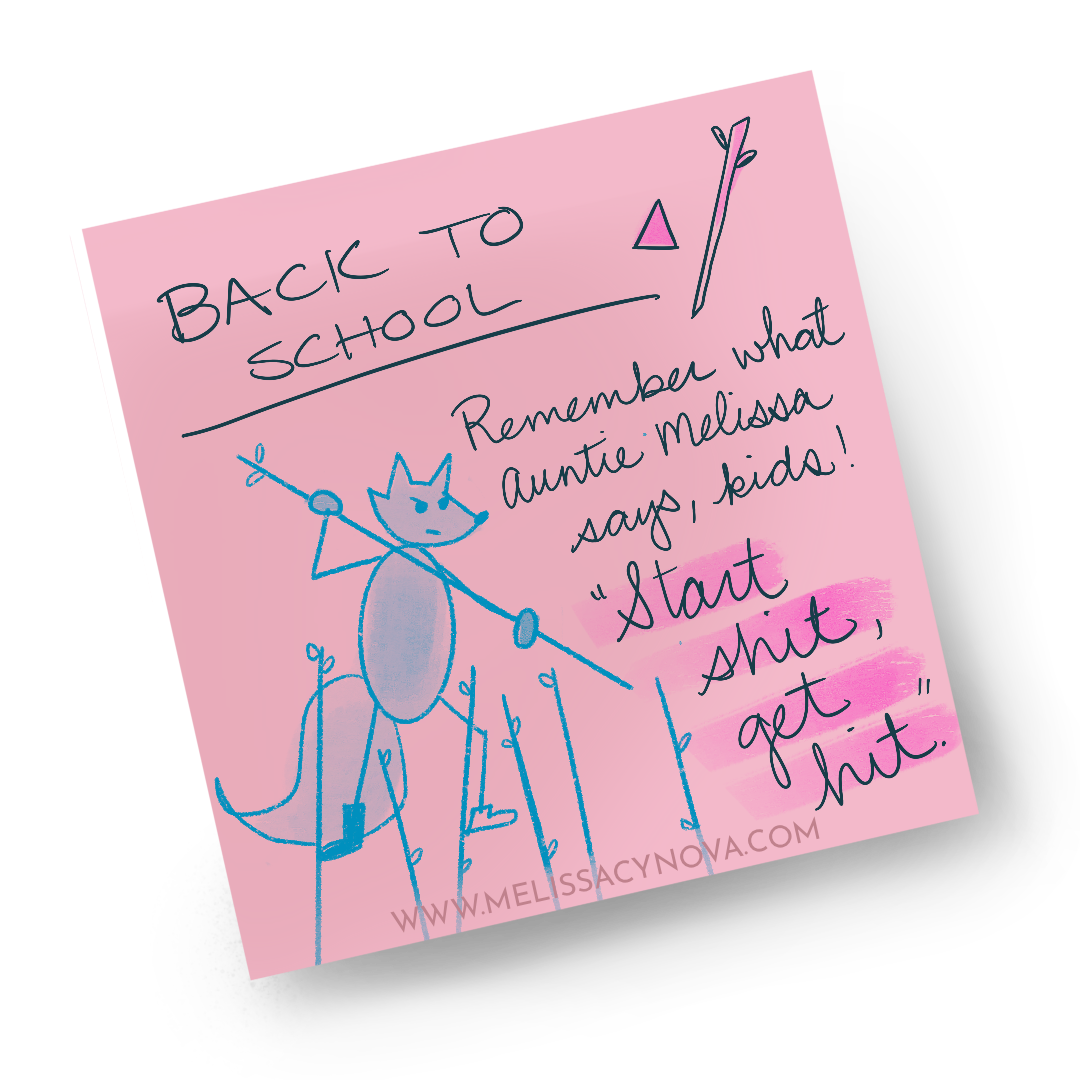 BACK TO
SCHOOL
Remember what
auntie Melissa
says, kids!
"Start
shit,
get
hit."
WWW.MELISSACYNOVA.COM